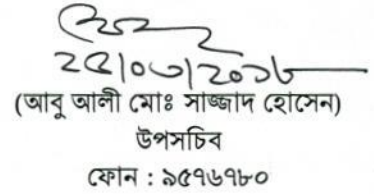 ২৫/০৩/২০১৮
(আবু আলী মোঃ সাজ্জাদ হোসেন)
উপসচিব
ফোন : ৯৫৭৬৭৮০